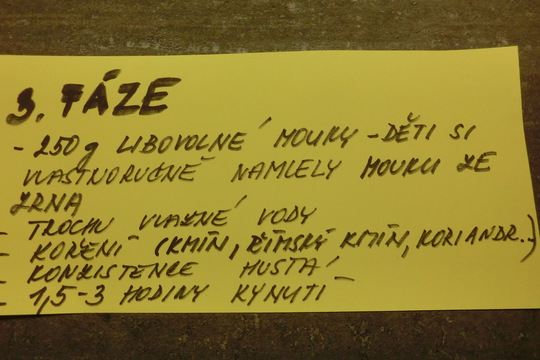 3. FÁZE
- 250g LIBOVOLNÉ MOUKY - DĚTI SI
VLASTNORUČNĚ NAMLELY MOUKU ZE
ZRNA
- TROCHU VLAŽNÉ VODY
- KOŘENÍ (KMÍN, ŘÍMSKÝ KMÍN, KORIANDR..)
- KONZISTENCE HUSTÁ
- 1,5-3 HODINY KYNUTÍ